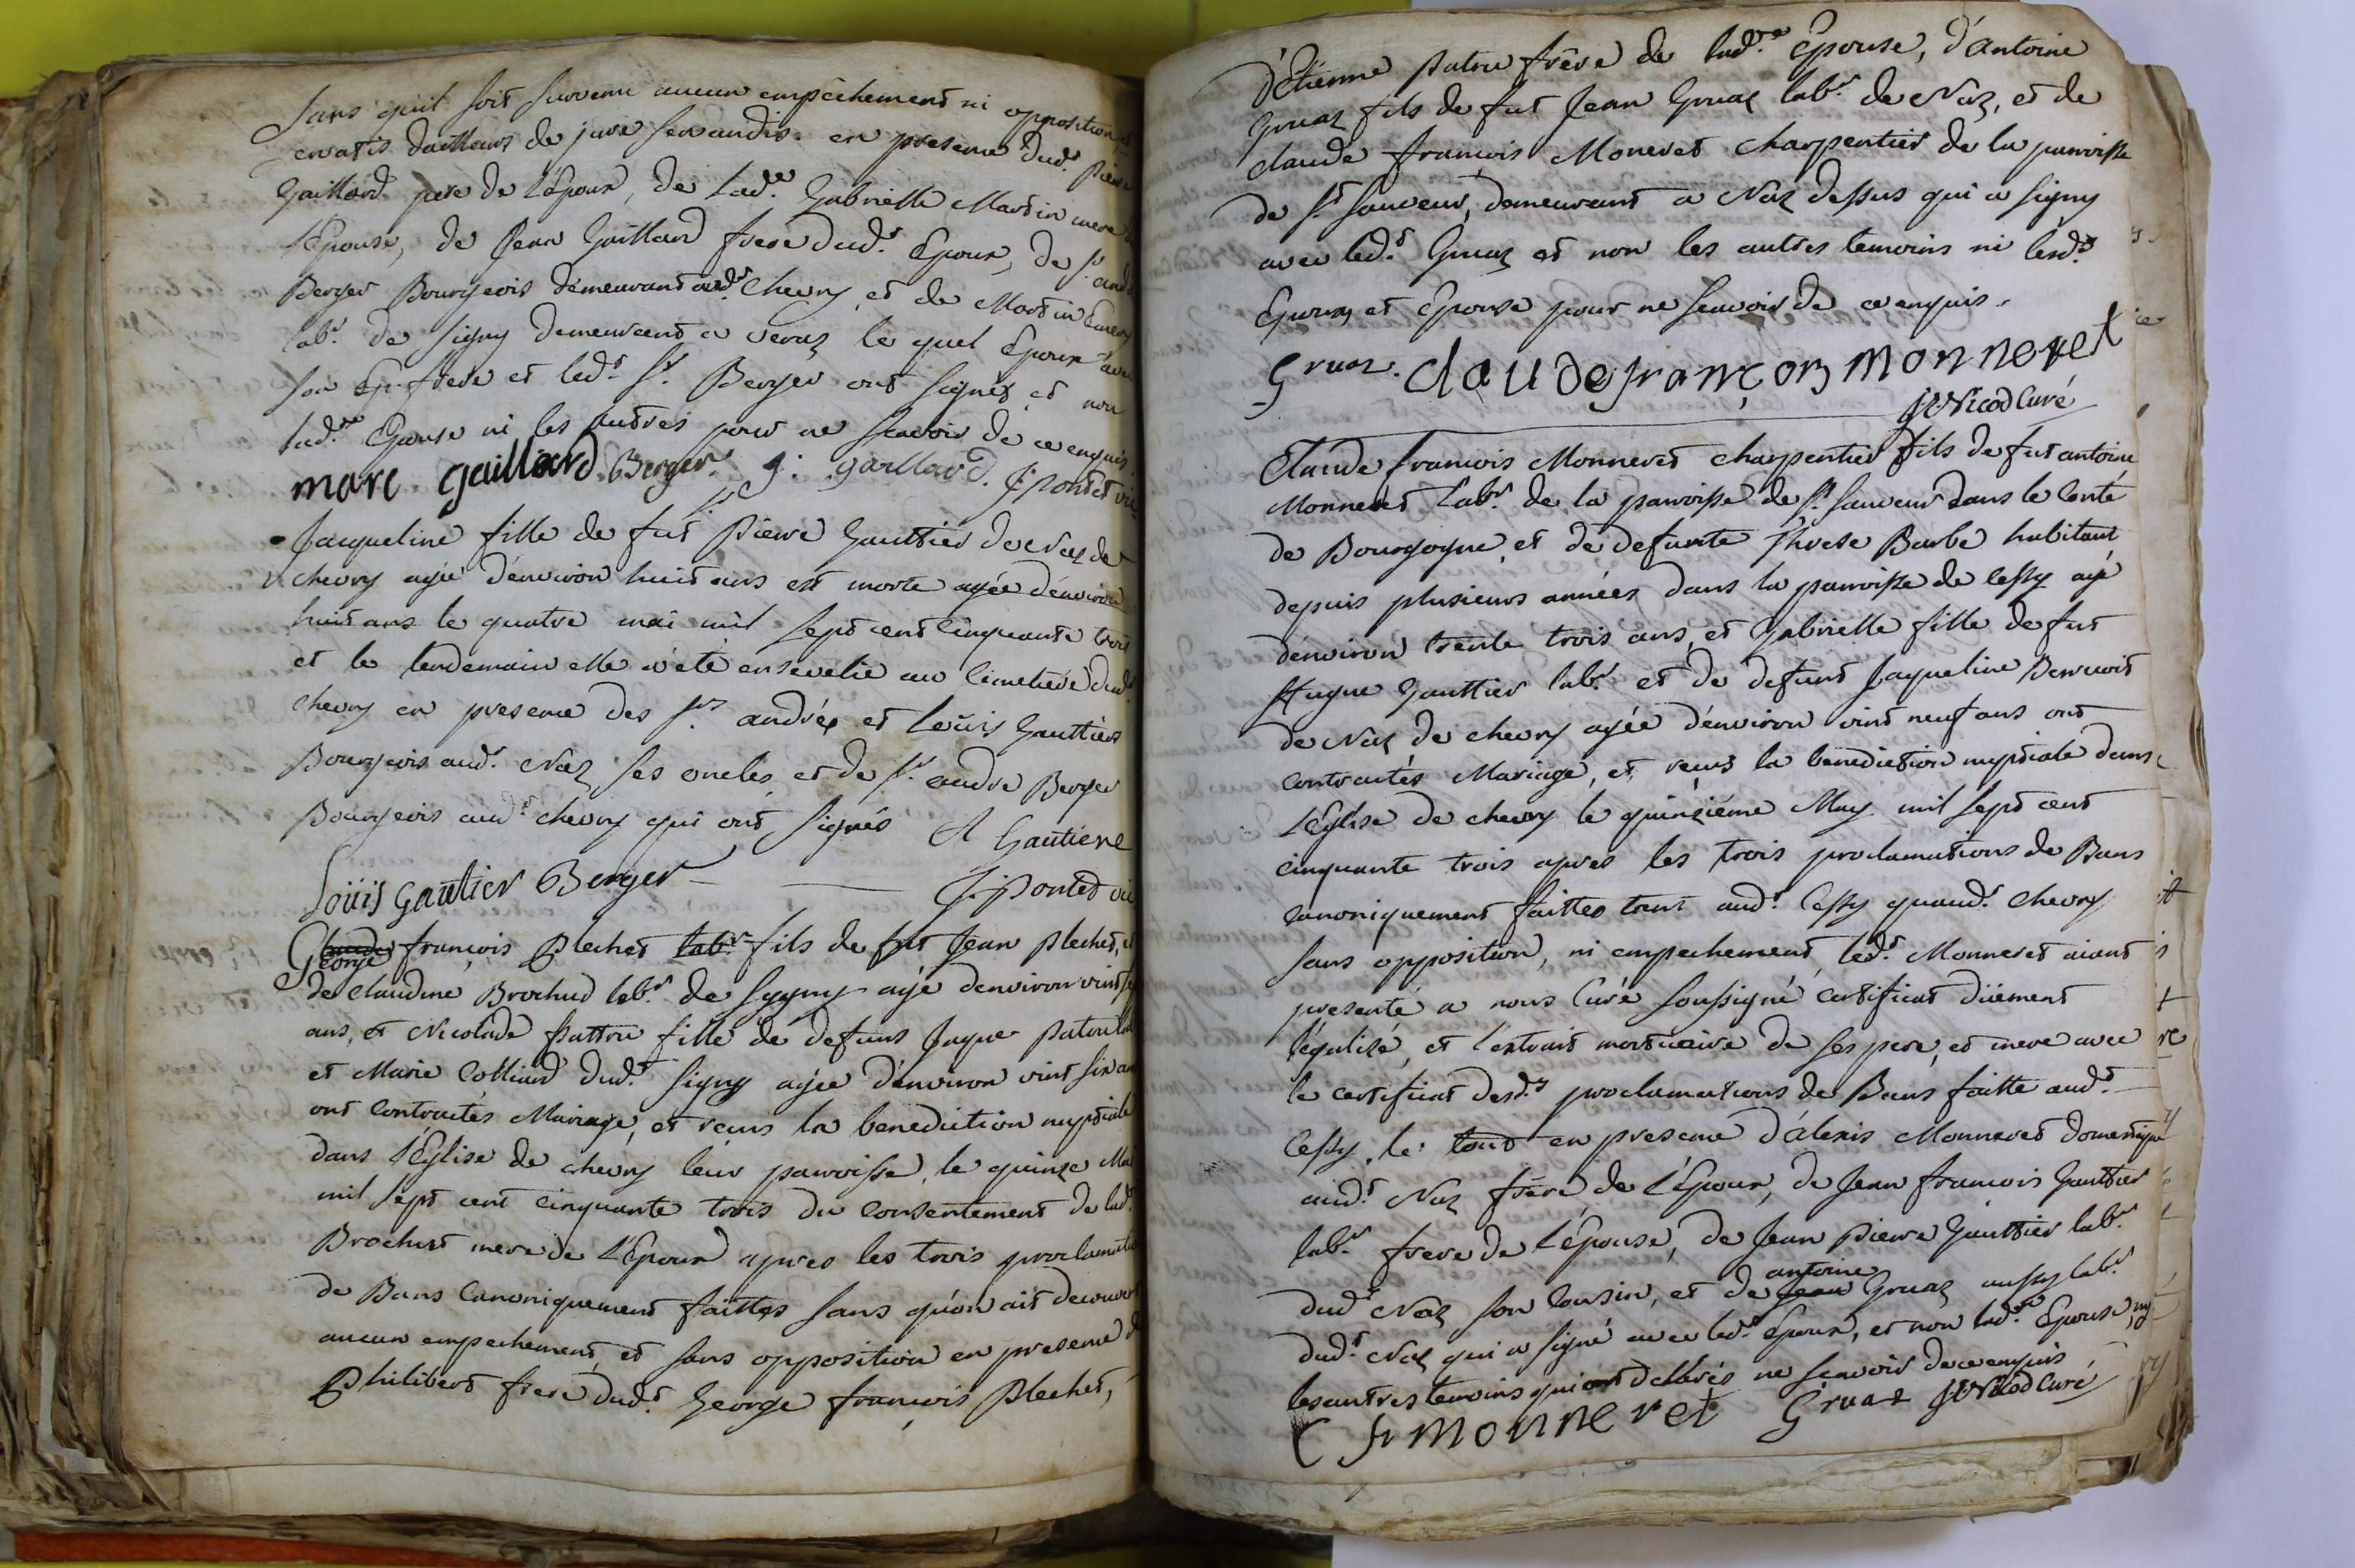 Sans quil soit survenu aucun empêchement ni opposition et
servatis dailleurs de jure servandis. en presence dud.t Pierre
Gaillard pere de l'Epoux, de lad.e Gabrielle Martin mere de
l'Epouse, de Jean Gaillard frere dud.t Epoux, de s.r andré
Berger Bourgeois demeurant aud.t Chevry et de Martin
lab.r de Signy demeurant a veraz le quel Epoux avec
son frere et led.t s.r Berger ont signés et non
lad.te Epouse ni les autres pour ne scavoir de ce enquis.
marc gaillard Berger. J: gaillard. J: pontet vic
Jacqueline fille de fut Pierre Gauttier de Naz de
chevry agée d'environ huit ans est morte agée d'environ
huit ans le quatre mai mil sept cent cinquante trois
et le lendemain elle a été ensevelie au Cimetiére dud.t
chevry en presence des s.rs andrée et Loüis Gauttiers
Bourgeois aud.t Naz ses oncles et de s.r andre Berger
Bourgeois aud.t chevry qui ont signés A Gautiere
Loüis gautier Berger J: pontet vic
George françois Plechet lab.r fils de fut Jean plechet, et
de Claudine Brochud lab.r de Sygny agé denviron vint
ans, et Nicolade Pattru fille de defunt Jaque patru
et Marie Colliard dud.t Signy agée d'environ vint six ans
ont contractés Mariage, et reçus la benediction nuptiale
dans l'Eglise de chevry leur paroisse, le quinze Mai
mil sept cent cinquante trois du consentement de lad.te
Brochut mere de l'Epoux apres les trois proclamations
de Bans Canoniquement faittes sans qu'on ait decouvert
aucun empechement, et sans opposition en presence de
Philibert frere dud.t George françois Plechet,
d'Etienne patru frêre de lad.te Epouse, d'Antoine
Gruaz fils de fut Jean Gruaz lab.r de Naz, et de
claude françois Moneret charpentier de la paroisse
de s.t Sauveur, demeurant a Naz dessus qui a signy
avec led.t Gruaz et non les autres temoins ni lesd.ts
Epoux et Epouse pour ne scavoir de ce enquis.
Gruaz. claude françois monneret
Nicod Curé
Claude françois Monneret charpentier fils de fut antoine
Monneret Lab.r de la paroisse de s.t Sauveur dans le Conté
de Bourgogne, et de defunte Threse Barbe habitant
depuis plusieurs années dans la paroisse de Cessy agé
d'environ trente trois ans, et Gabrielle fille de fut
Hugue Gauttier lab.r et de defunt Jaqueline Benoit
de Naz de chevry agée d'environ vint neuf ans ont
contractés Mariage, et reçus la benediction nuptiale dans
l'Eglise de chevry le quinziéme May mil sept cent
cinquante trois apres les trois proclamations de Bans
canoniquement faittes tant aud.t Cessy quaud.t Chevry
sans opposition, ni empechement, led.t Monneret aiant
presenté a nous Curé soussigné certificat düement
légalizé, et l'extrait mortuaire de ses pere, et mere avec
le certificat desd.ts proclamations de Bans faitte aud.t
Cessy, le tout en presence d'alexis Monneret domestique
aud.t Naz frére de l'Epoux, de Jean françois Gauttier
lab.r frere de l'épouse, de Jean Pierre Gauttier lab.r
antoine
dud.t Naz son Cousin, et de Jean Gruaz aussy lab.r
dud.t Naz qui a signé avec led.t Epoux, et non lad.te Epouse, ny
les autres temoins qui ont delarés ne scavoir de ce enquis
C fr monneret Gruaz Nicod Curé